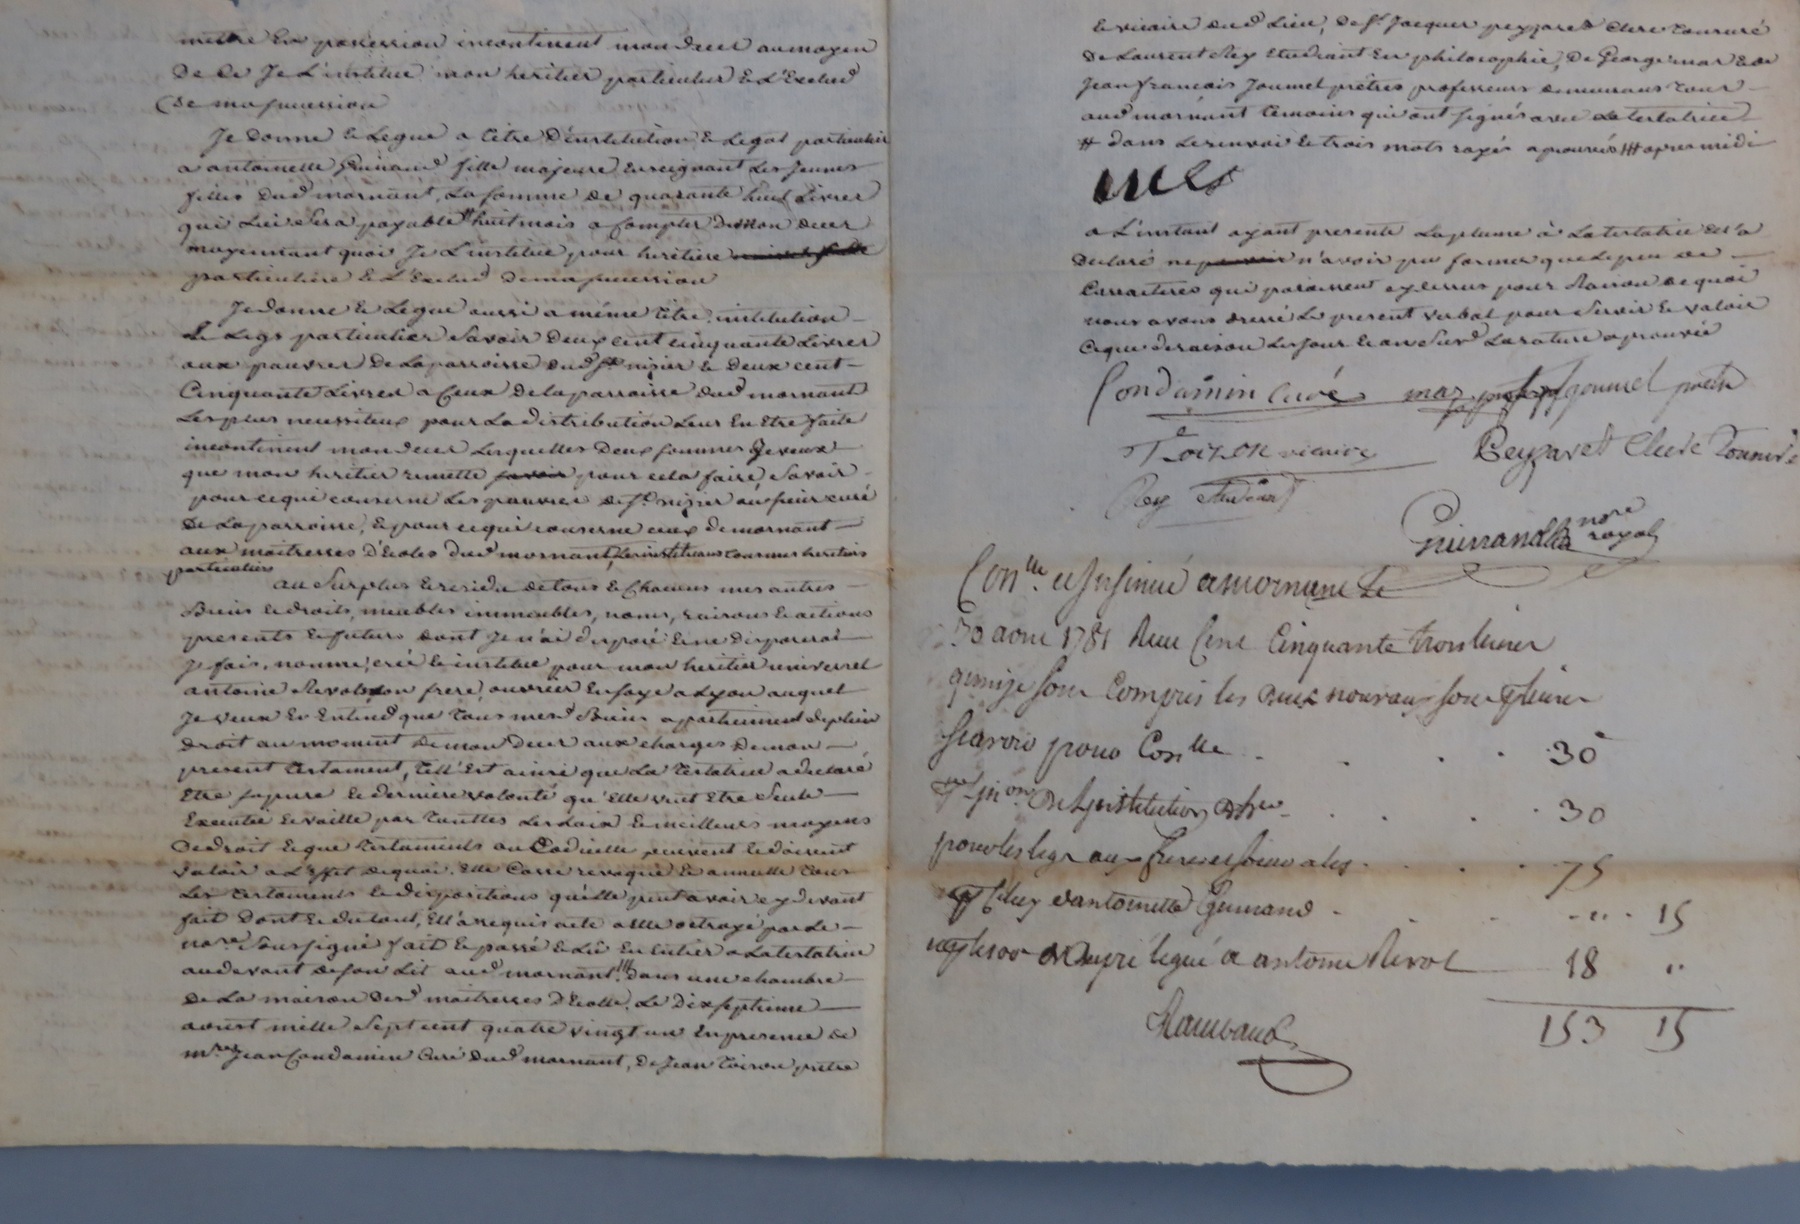 mettre en possession incontinent mon decer au moyen
de ce Je L'institue mon heritier particulier & L'Exclud
de ma succession
Je donne & Legue a titre D'institution & Legat particulier
a antoinette Guinand fille majeure Enseignant Les jeunes
filles dud mornant, La somme de quarante huit Livres
qui Lui sera payable huit mois a Compter du mon decer
moyennant quoi Je L'institue pour heritiere
particuliere & L'Exclud de ma succession
Je donne & Legue aussi a même titre institution
& Legs particulier Savoir Deux cent cinquante Livres
aux pauvres De La parroisse dud St nizier & Deux cent
Cinquante Livres a Ceux de la parroisse dud mornant
Les plus necessiteux pour La distribution Leur En Etre faite
incontinent mon decer Lesquelles Deux sommes Je veux
que mon heritier remette pour cela faire Savoir
pour ce qui conserne Les pauvres de St nizier au sieur curé
De La parroisse, & pour ce qui conserne ceux de mornant
aux maitresses D'Ecoles dud mornant, Les instituant toutes heritiers
particuliers
au Surplus & residu de tous & Chacuns mes autres
Biens & droits, meubles immeubles, noms, raisons & actions
presents & futurs dont Je n'ai disposé & ne disposerai
Je fais, nomme, créé & institue pour mon heritier universel
antoine Revol mon frere, ouvrier En soye a Lyon auquel
Je veux & Entend que tous mesd Biens appartiennent de plein
droit au moment de mon Decer aux charges de mon
present testament, tell'Est ainsi que La testatrice a declaré
Etre sa pure & derniere volonté qu'Elle veut Etre Seule
Executée & vaille par touttes Les Loix & meilleurs moyens
De droit & que testaments ou Codicille peuvent & doivent
valoir a L'effet de quoi. Elle Casse revoque & annulle tous
Les testaments & dispositions qu'elle peut avoir cy devant
fait Dont & du tout, Ell'a requis acte a Elle octroyé par Le
nore Soussigné fait & passé & Lû En Entier a La testatrice
au devant de son Lit aud mornant dans une chambre
De La maison desd maitresses D'Ecolle. Le Dix septieme
aoust mille Sept cent quatre vingt un En presence de
mre Jean Condamin Curé dud mornant, De Jean toison prêtre
& vicaire dud Lieu, De St Jacques peyzaret Clerc tonsuré
De Laurent Rey Etudiant En philosophie, De George mas & de
Jean francois Joumel prêtres professeurs demeurans tous
aud mornant temoins qui ont signés avec La testatrice
# dans Le renvoi & trois mots rayés aprouvés ## apres midi
a L'instant ayant presenté La plume à La testatrice Ell'a
declaré ne n'avoir pu former que Le peu de
Carracteres qui paroissent cy dessus pour Raison de quoi
nous avons dressé Le present verbal pour Servir & valoir
Ce que de raison Les jour & an Susd La rature aprouvée
Condamin Curé mas Joumel pretre
Toizon vicaire Peyzaret Clerc Tonsuré
Rey etudiant
Guinand nore royal
Conlle et Insinué a mornant Le
30 aout 1781 Reçu Cent Cinquante trois livres
quinze sous Compris les Deux nouveaux sous p livres
Scavoir pour Conlle . . . . 30
Insion De L'institution . . . . 30
pour les legs aux . . . . 75
d'antoinette Guinand . . . . 15
legué a antoine Revol 18 "
153 15
Rambaud